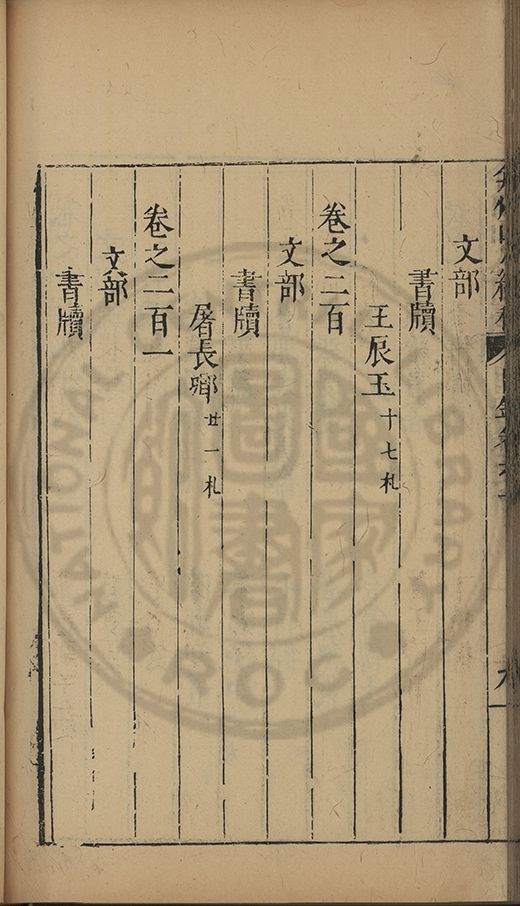 文部
書牘
王辰玉十七札
卷之二百
文部
書牘
屠長卿廿一札
卷之二百一
文部
書牘